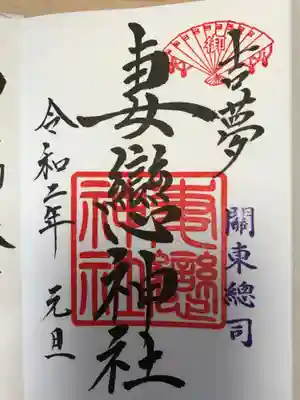 吉夢
關東總司
妻戀神社
妻戀
神社
令和二年 元旦